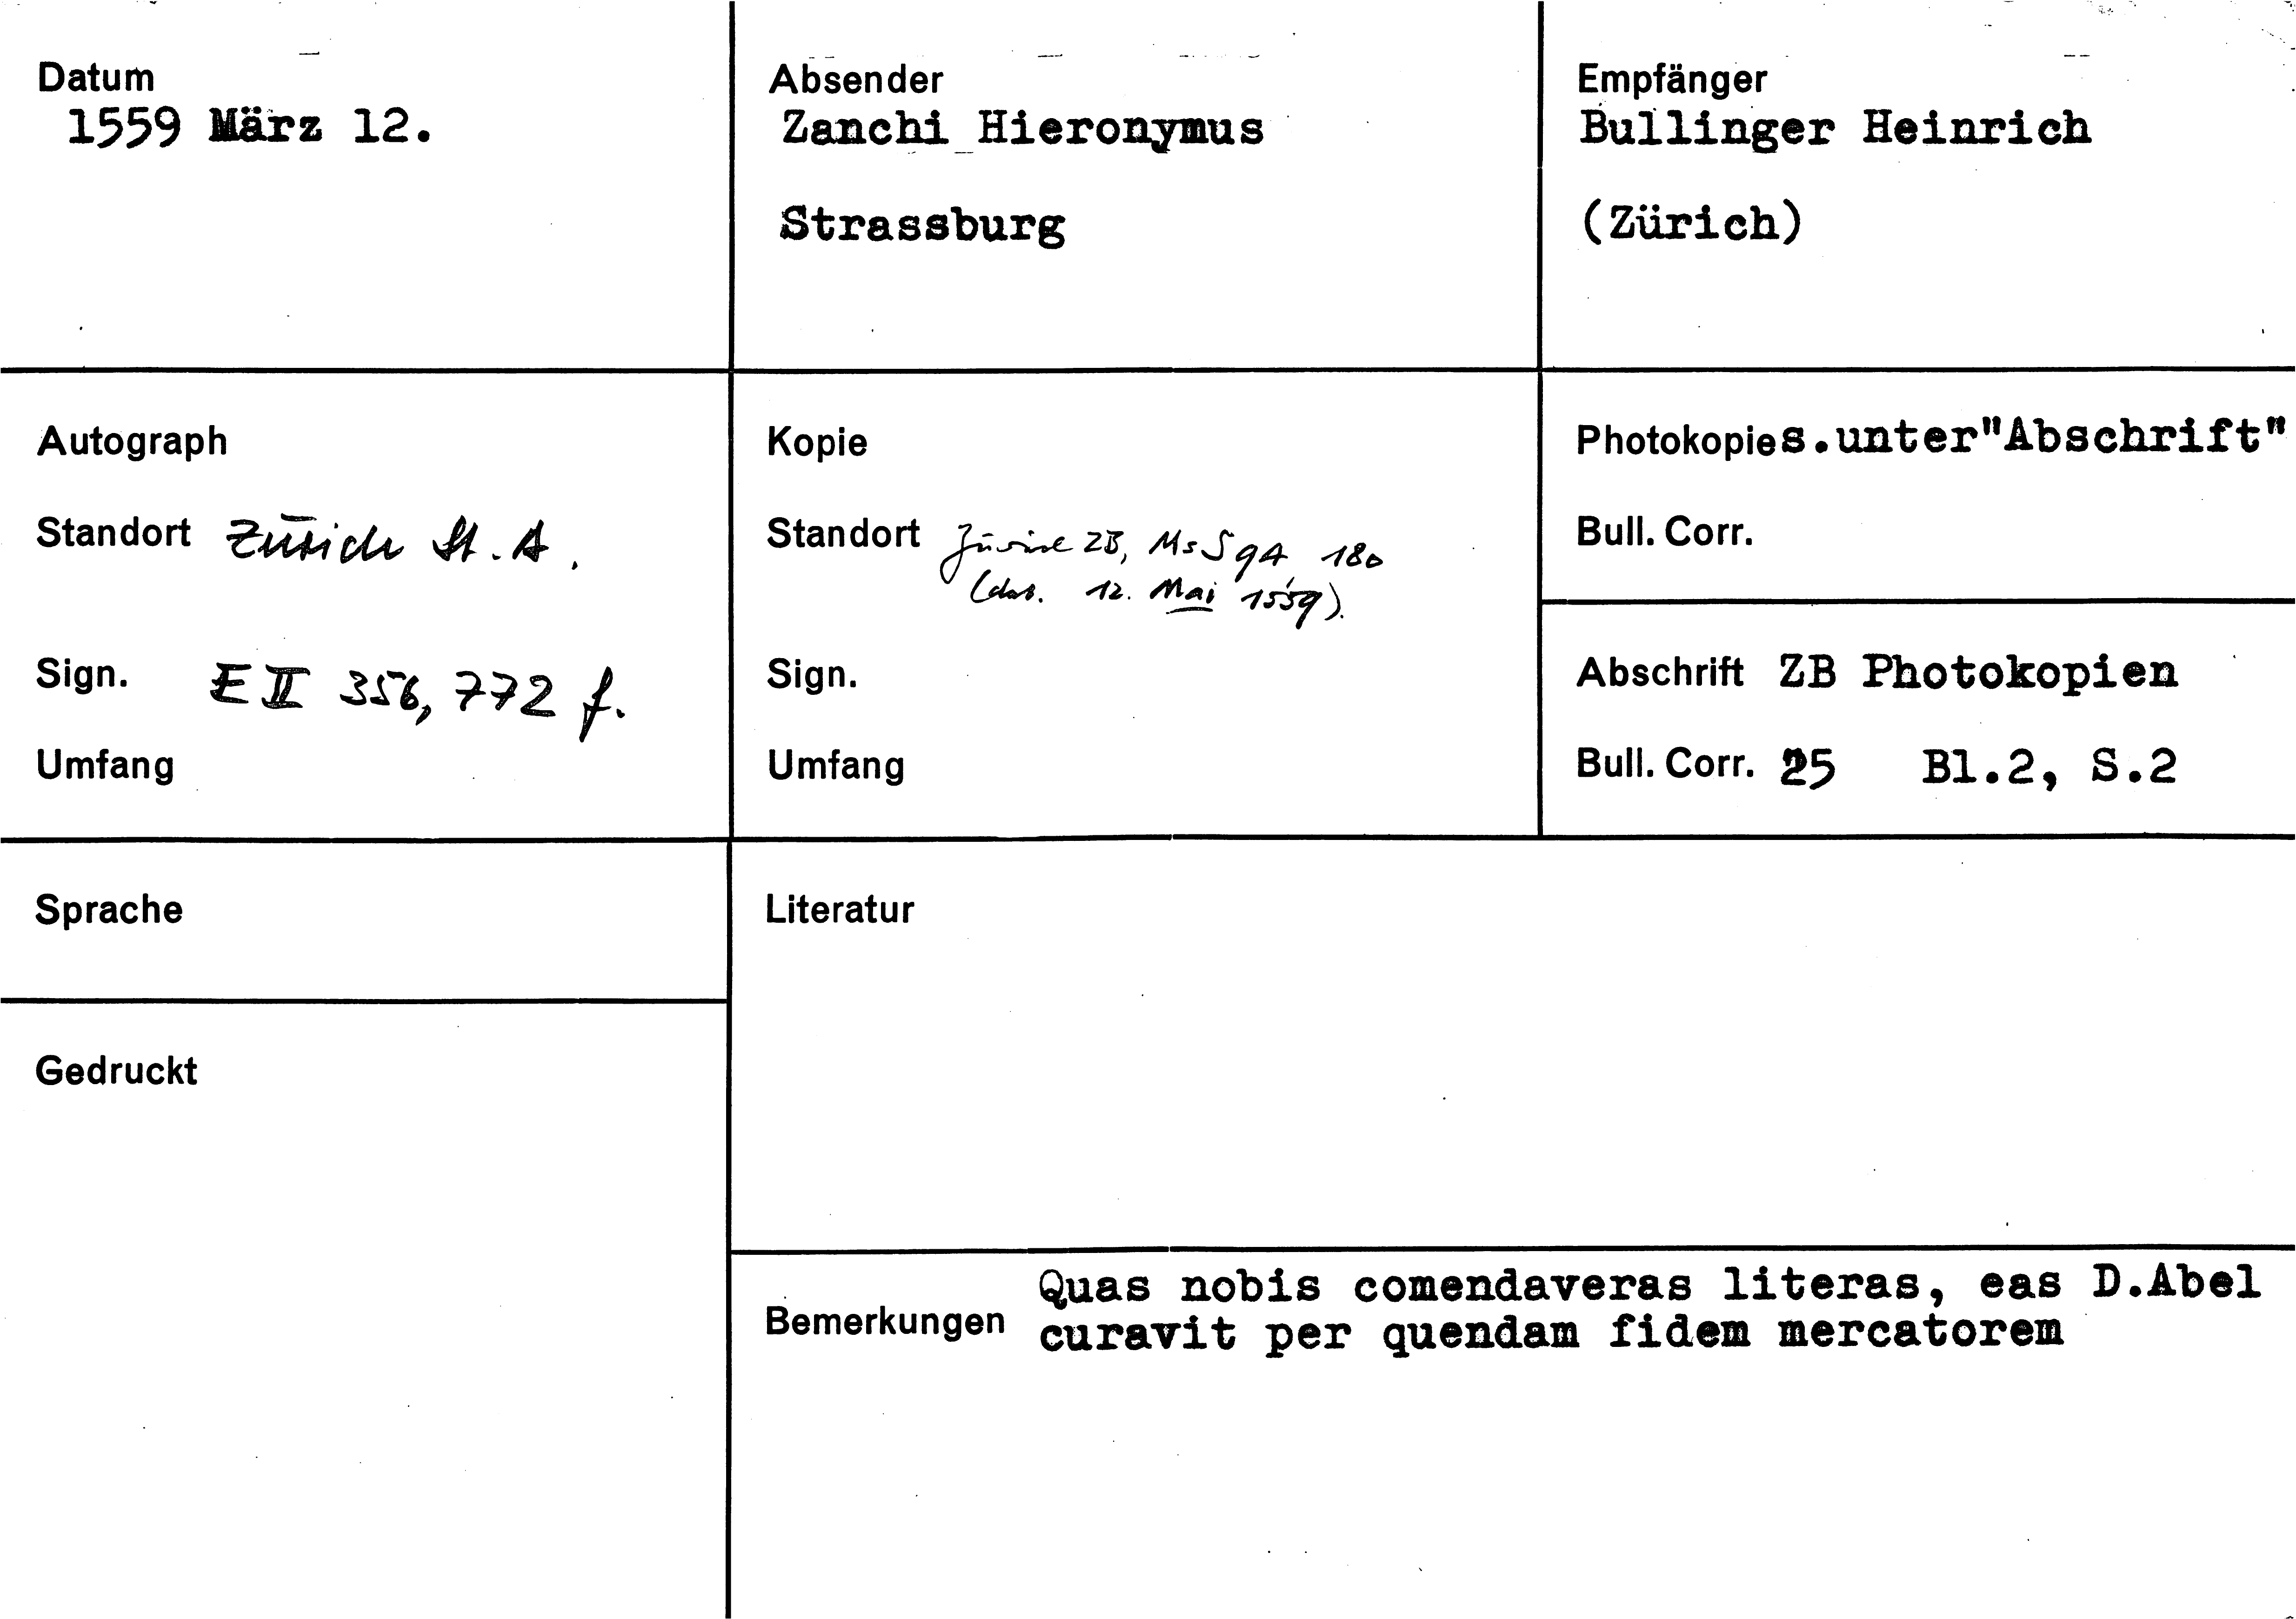 Datum
1559 März 12.
Absender
Zanchi Hieronymus
Strassburg
Empfänger
Bullinger Heinrich
(Zürich)
Autograph
Standort Zürich St. A.
Sign. E II 356, 772 f.
Umfang
Kopie
Standort Zürich ZB, Ms S 94 180
(dat. 12. Mai 1559).
Sign.
Umfang
Photokopie s.unter"Abschrift"
Bull. Corr.
Abschrift ZB Photokopien
Bull. Corr. 25 Bl.2, S.2
Sprache
Gedruckt
Literatur
Bemerkungen Quas nobis comendaveras literas, eas D.Abel
curavit per quendam fidem mercatorem